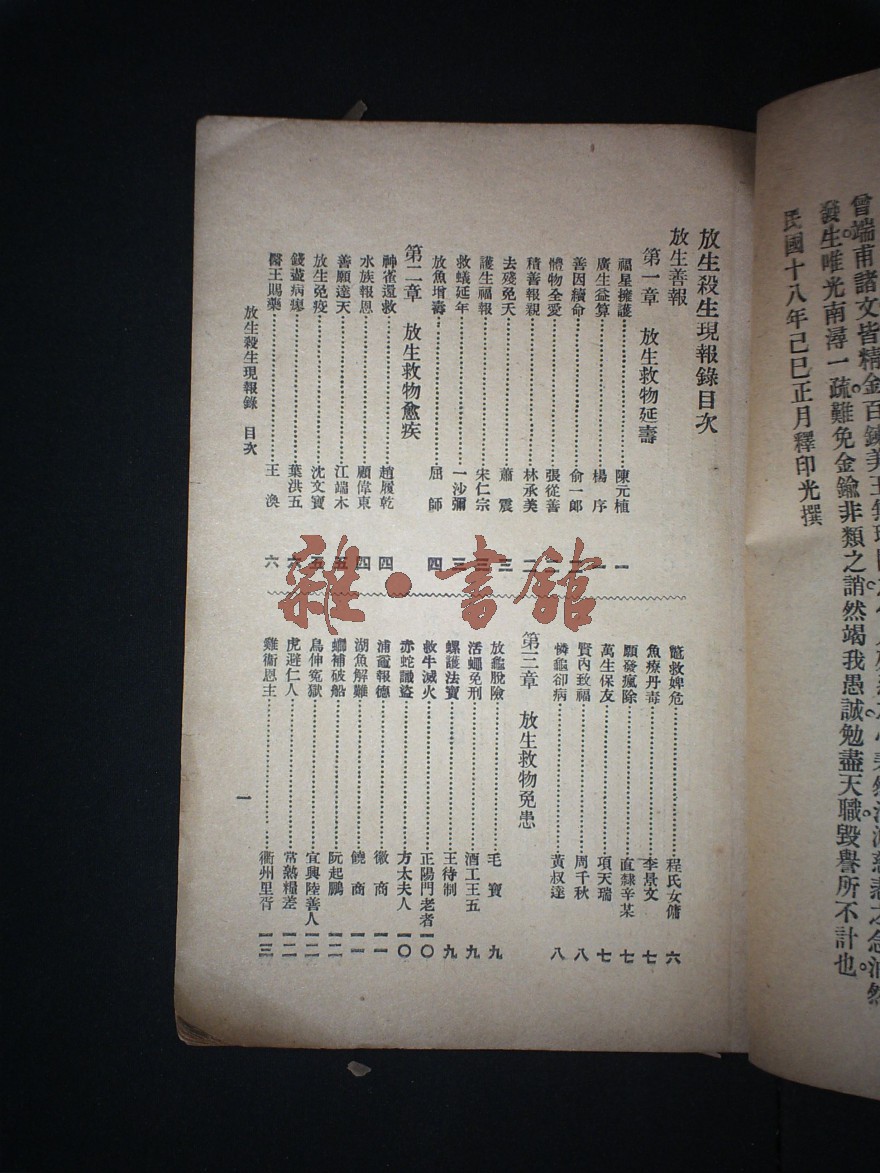 曾端甫諸文皆精金百鍊美玉無瑕
發生唯光南潯一疏難免金鍮非類之誚然竭我愚誠勉盡天職毀譽所不計也。
民國十八年己巳正月釋印光撰
放生殺生現報錄目次
放生善報
第一章 放生救物延壽
福星擁護……陳元植 一
廣生益算……楊序 一
善因續命……俞一郎 二
體物全愛……張從善 二
積善報親……林承美 二
去殘免夭……蕭震 三
護生福報……宋仁宗 三
救蟻延年……一沙彌 三
放魚增壽……屈師 四
第二章 放生救物愈疾
神雀還救……趙履乾 四
水族報恩……顧偉東 四
善願達天……江端木 五
放生免疫……沈文寶 五
錢盡病瘳……葉洪五 六
醫王賜藥……王渙 六
鼈救婢危……程氏女傭 六
魚療丹毒……李景文 七
願發瘋除……直隸辛某 七
萬生保友……項天瑞 七
賢內致福……周千秋 八
憐龜卻病……黃叔達 八
第三章 放生救物免患
放龜脫險……毛寶 九
活蠅免刑……酒工王五 九
螺護法寶……王待制 九
救牛滅火……正陽門老者 一〇
赤蛇識盜……方太夫人 一〇
浦黿報德……徽商 一一
湖魚解難……饒商 一一
螄補破船……阮起鵬 一二
鳥伸寃獄……宜興陸善人 一二
虎避仁人……常熱糧差 一二
雞衞恩主……衢州里胥 一三
放生殺生現報錄 目次
一
雜·書館